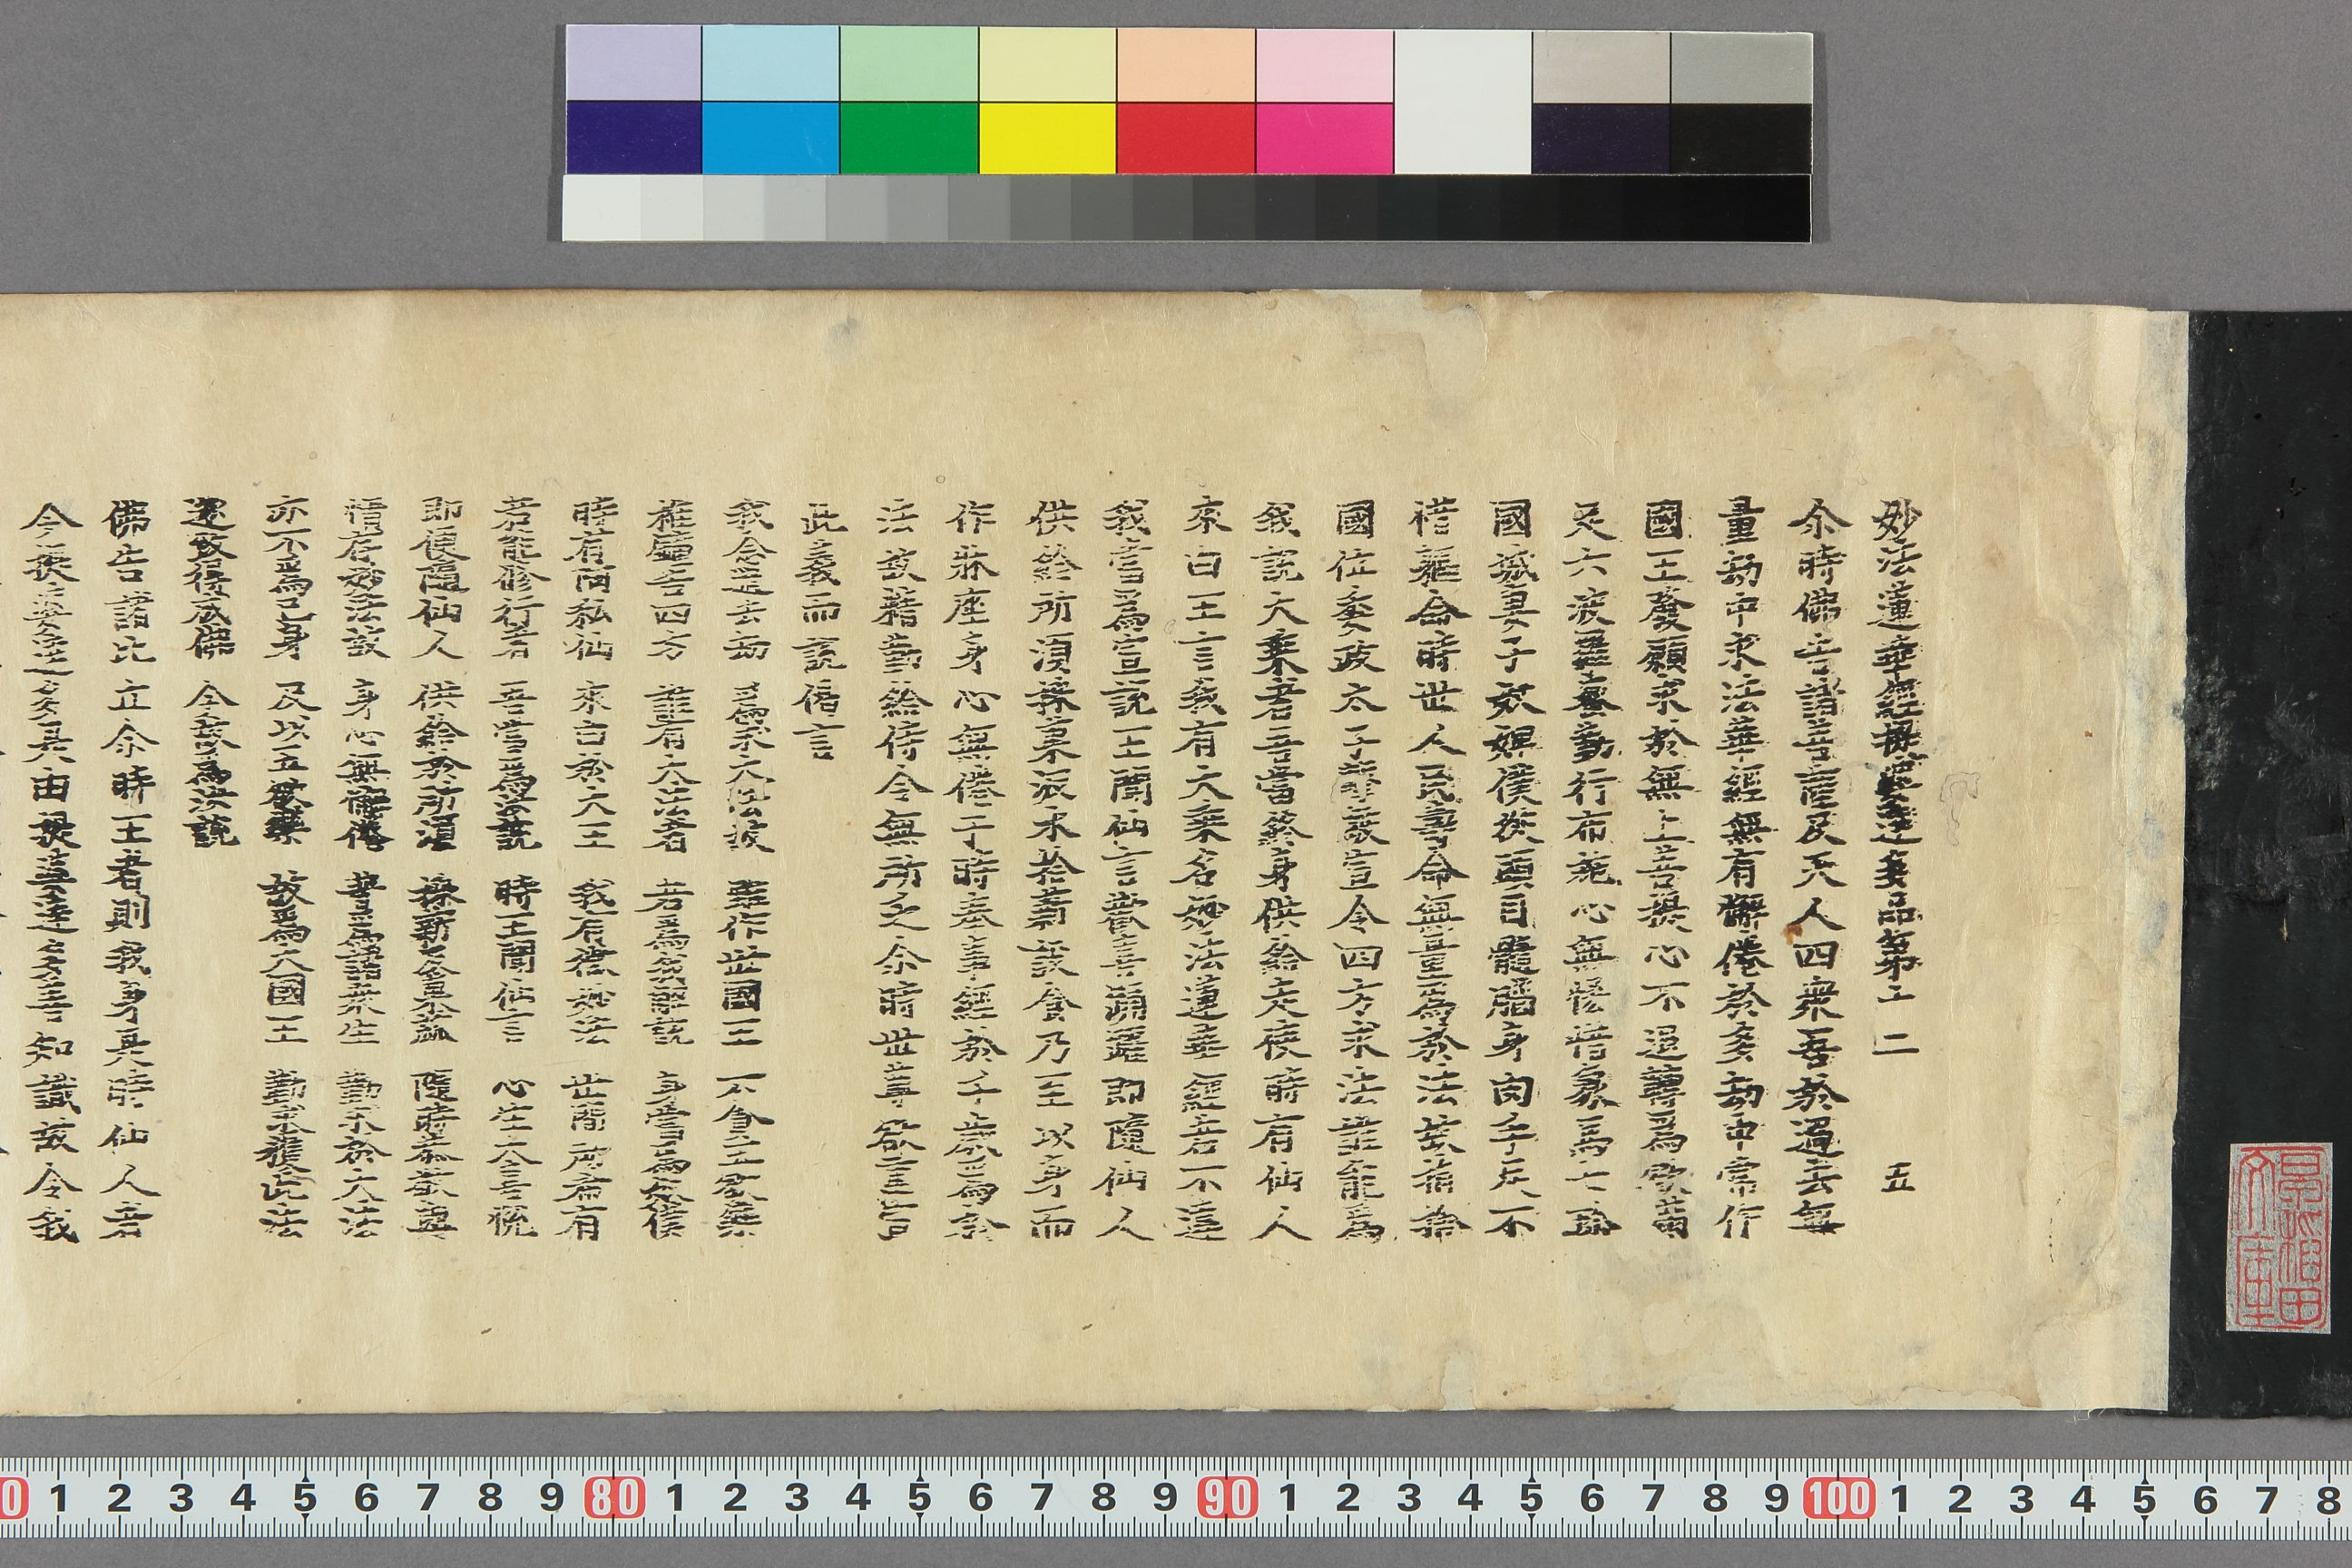 妙法蓮華經提婆達多品第十二 五
尒時佛告諸菩薩及天人四衆吾於過去無
量劫中求法華經無有懈惓於多劫中常作
國王發願求於無上菩提心不退轉爲欲滿
足六波羅蜜勤行布施心無悋惜象馬七珍
國城妻子奴婢僕從頭目髓腦身肉手足不
惜軀命時世人民壽命無量爲於法故捐捨
國位委政太子擊鼓宣令四方求法誰能爲
我説大乘者吾當終身供給走使時有仙人
來白王言我有大乘名妙法蓮華經若不違
我當爲宣説王聞仙言歡喜踊躍即隨仙人
供給所須採菓汲水拾薪設食乃至以身而
作牀座身心無惓于時奉事經於千歳爲於
法故精勤給侍令無所乏尒時世尊欲重宣
此義而説偈言
我念過去劫 爲求大法故 雖作世國王 不貪五欲樂
椎鍾告四方 誰有大法者 若爲我解説 身當爲奴僕
時有阿私仙 來白於大王 我有微妙法 世間所希有
若能修行者 吾當爲汝説 時王聞仙言 心生大喜悦
即便隨仙人 供給於所須 採薪及菓蓏 隨時恭敬與
情存妙法故 身心無懈惓 普爲諸衆生 勤求於大法
亦不爲己身 及以五欲樂 故爲大國王 勤求獲此法
遂致得成佛 今故爲汝説
佛告諸比丘尒時王者則我身是時仙人者
今提婆達多是由提婆達多善知識故令我
0 1 2 3 4 5 6 7 8 9 80 1 2 3 4 5 6 7 8 9 90 1 2 3 4 5 6 7 8 9 100 1 2 3 4 5 6 7 8